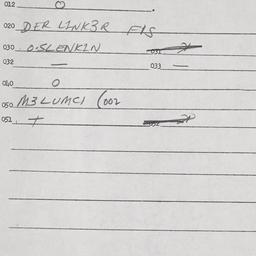 012 O
020 DER LINK3R FIS
030 O.SLENKIN 031
032 — 033 —
040 O
050 M3LUMCI (002
052 +